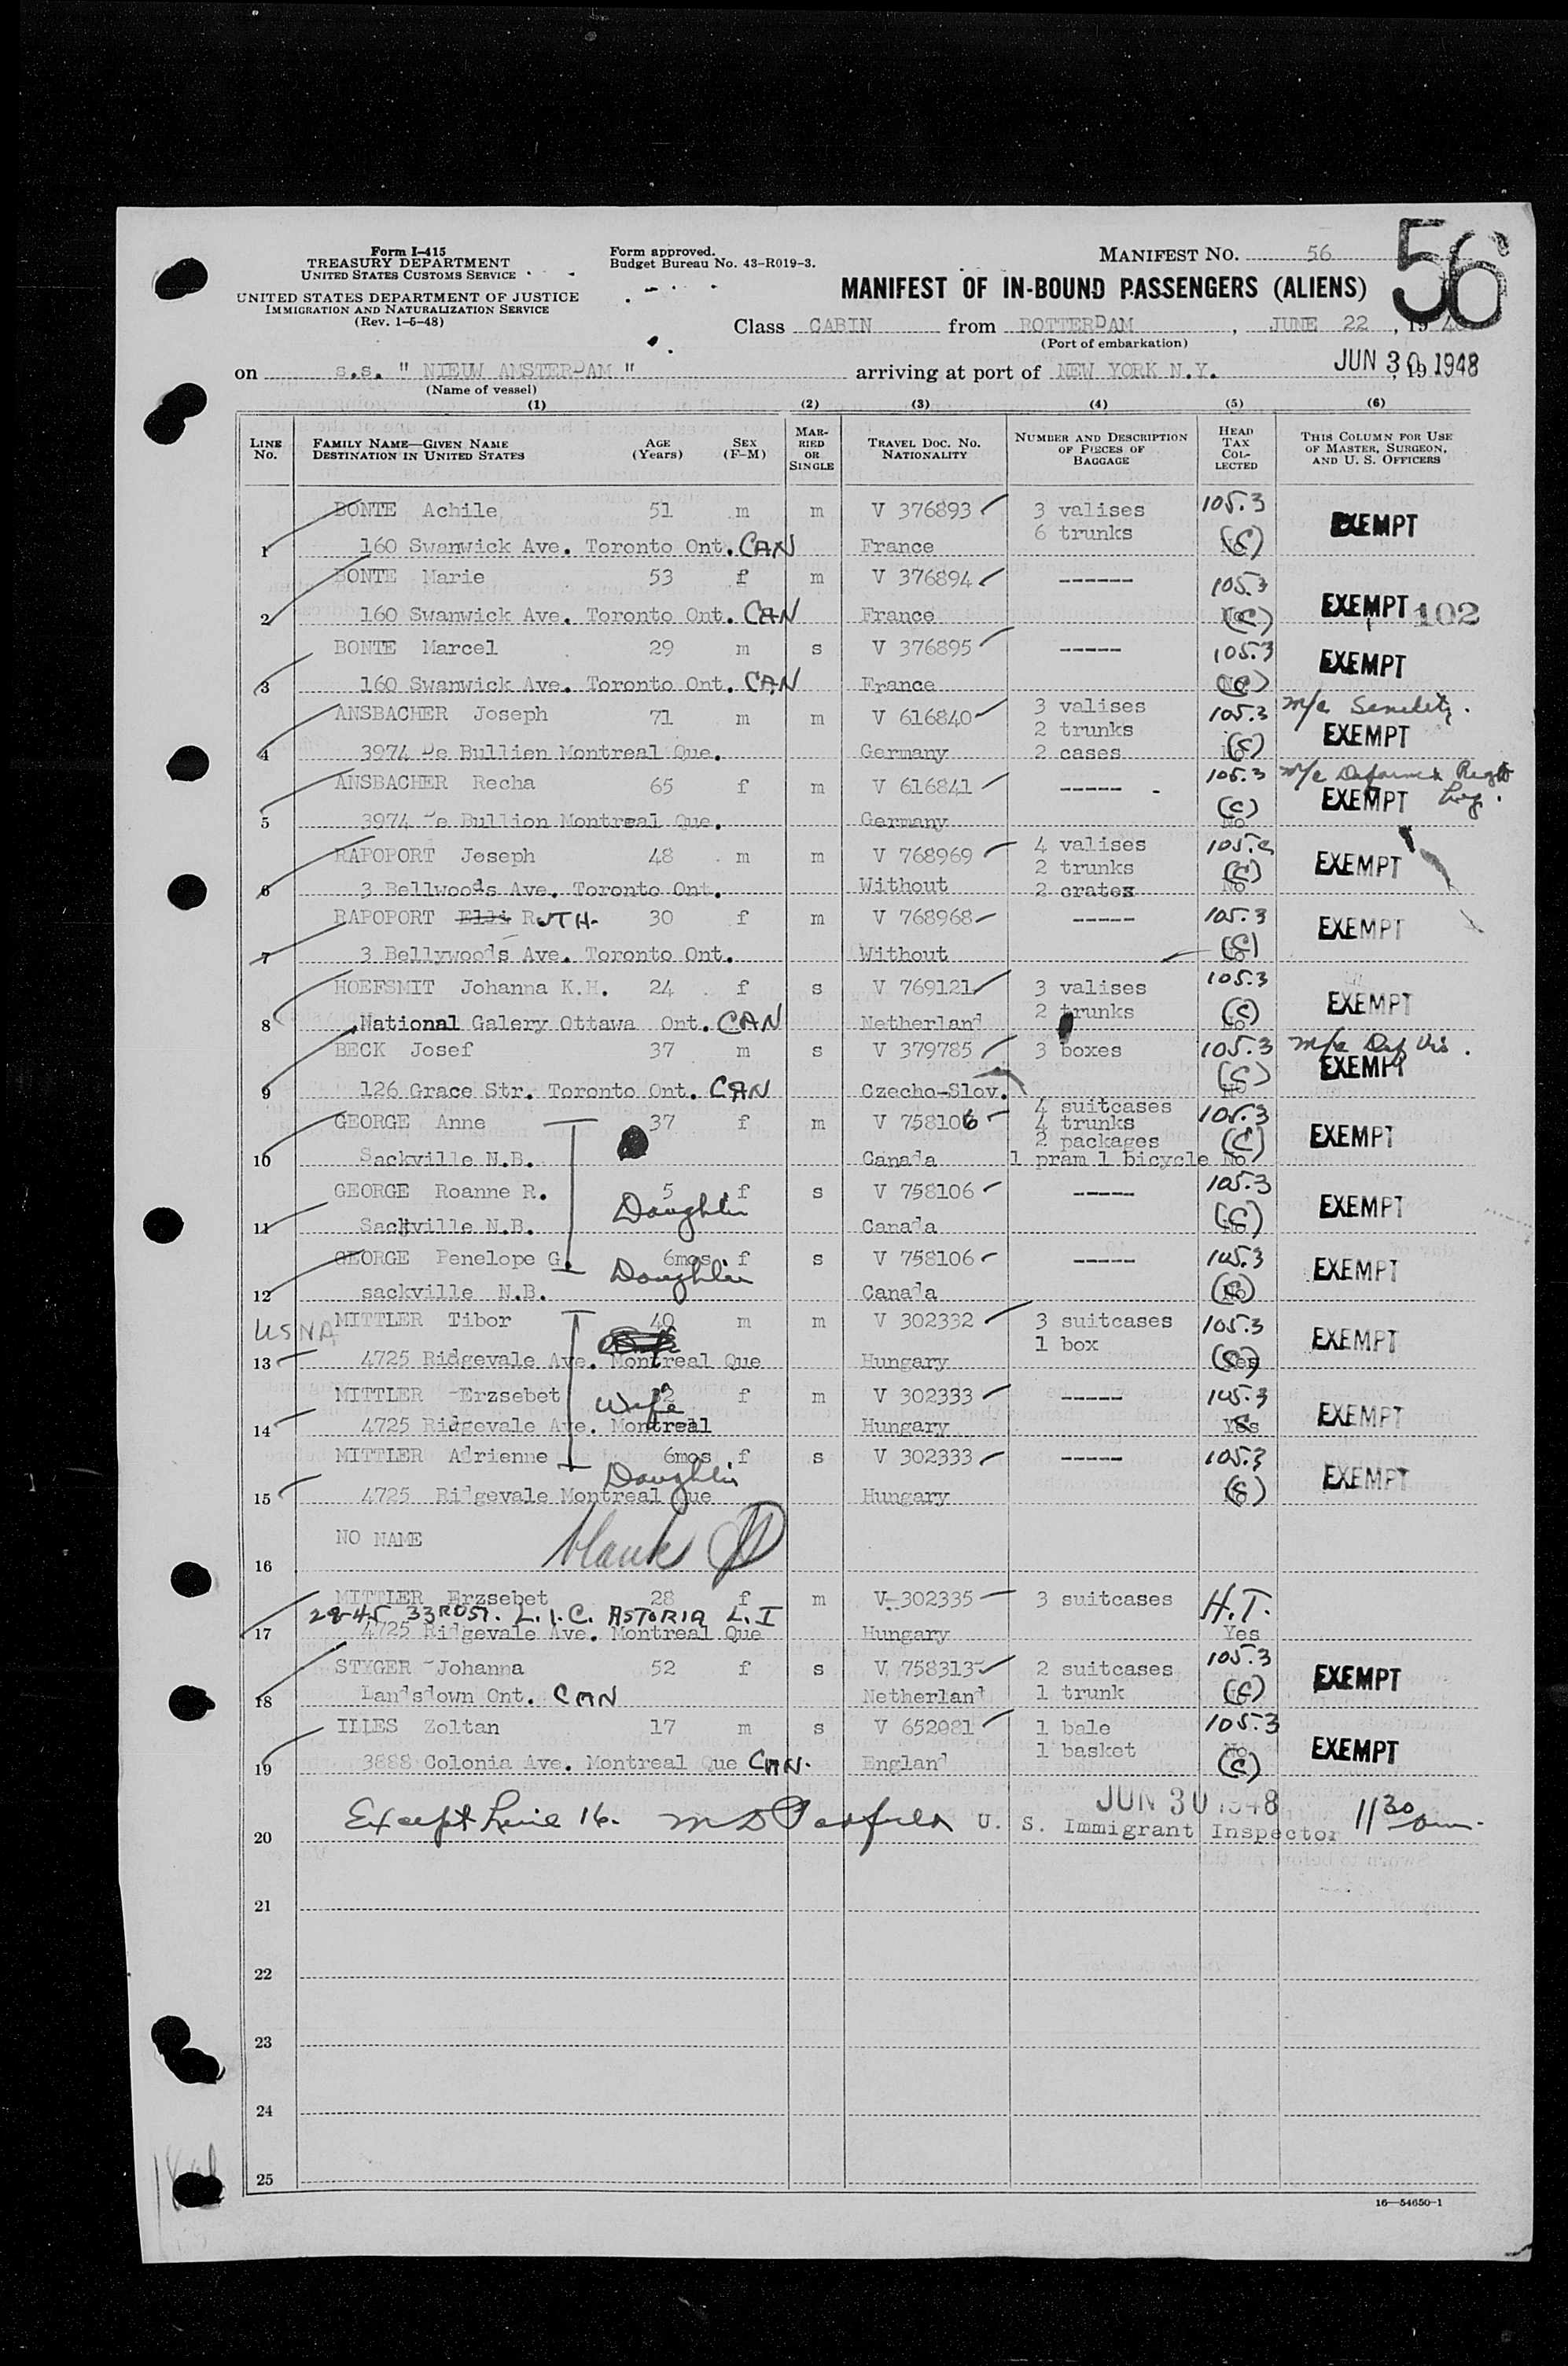 Form I-415
TREASURY DEPARTMENT
UNITED STATES CUSTOMS SERVICE
UNITED STATES DEPARTMENT OF JUSTICE
IMMIGRATION AND NATURALIZATION SERVICE
(Rev. 1-5-48)
Form approved.
Budget Bureau No. 43-R019-3.
MANIFEST NO. 56
56
MANIFEST OF IN-BOUND PASSENGERS (ALIENS)
Class CABIN from ROTTERDAM, JUNE 22, 19
(Port of embarkation)
on s.s. " NIEUW AMSTERDAM " arriving at port of NEW YORK N.Y. JUN 30 1948, 19
(Name of vessel)
(1) (2) (3) (4) (5) (6)
LINE NO. FAMILY NAME—GIVEN NAME DESTINATION IN UNITED STATES AGE (Years) SEX (F-M) MARRIED OR SINGLE TRAVEL DOC. NO. NATIONALITY NUMBER AND DESCRIPTION OF PIECES OF BAGGAGE HEAD TAX COLLECTED THIS COLUMN FOR USE OF MASTER, SURGEON, AND U. S. OFFICERS
BONTE Achile 51 m m V 376893 3 valises 105.3
6 trunks EXEMPT
1 160 Swanwick Ave. Toronto Ont. CAN France (C)
BONTE Marie 53 f m V 376894 ------ 105.3
2 160 Swanwick Ave. Toronto Ont. CAN France (C) EXEMPT 102
BONTE Marcel 29 m s V 376895 ----- 105.3 EXEMPT
3 160 Swanwick Ave. Toronto Ont. CAN France (C)
ANSBACHER Joseph 71 m m V 616840 3 valises 105.3 m/c Senility.
2 trunks EXEMPT
4 3974 De Bullien Montreal Que. Germany 2 cases (C)
ANSBACHER Recha 65 f m V 616841 ----- 105.3 m/c Right
EXEMPT
5 3974 De Bullion Montreal Que. Germany (C) No
RAPOPORT Joseph 48 m m V 768969 4 valises 105.3
2 trunks EXEMPT
6 3 Bellwoods Ave. Toronto Ont. Without 2 crates (C) No
RAPOPORT Elli RUTH 30 f m V 768968 ----- 105.3 EXEMPT
7 3 Bellywoods Ave. Toronto Ont. Without (C)
HOEFSMIT Johanna K.H. 24 f s V 769121 3 valises 105.3
2 trunks EXEMPT
8 National Galery Ottawa Ont. CAN Netherland (C)
BECK Josef 37 m s V 379785 3 boxes 105.3 m/c Def Vis.
EXEMPT
9 126 Grace Str. Toronto Ont. CAN Czecho-Slov. (C) No
4 suitcases
GEORGE Anne 37 f m V 758106 4 trunks 105.3
2 packages (C) EXEMPT
10 Sackville N.B. Canada 1 pram 1 bicycle No
GEORGE Roanne R. 5 f s V 758106 ----- 105.3
Daughter EXEMPT
11 Sackville N.B. Canada (C)
GEORGE Penelope G. 6mos f s V 758106 ----- 105.3
Daughter EXEMPT
12 sackville N.B. Canada (C)
USNA MITTLER Tibor 40 m m V 302332 3 suitcases 105.3
1 box EXEMPT
13 4725 Ridgevale Ave. Montreal Que Hungary (C) Yes
MITTLER Erzsebet 32 f m V 302333 ----- 105.3
Wife EXEMPT
14 4725 Ridgevale Ave. Montreal Hungary Yes
MITTLER Adrienne 6mos f s V 302333 ----- 105.3
Daughter EXEMPT
15 4725 Ridgevale Montreal Que Hungary (C)
NO NAME
16 blank
MITTLER Erzsebet 28 f m V 302335 3 suitcases H.T.
28-45 33RD ST. L.I.C. ASTORIA L.I
17 4725 Ridgevale Ave. Montreal Que Hungary Yes
STYGER Johanna 52 f s V 758313 2 suitcases 105.3
18 Landsdown Ont. CAN Netherland 1 trunk (C) EXEMPT
ILLES Zoltan 17 m s V 652081 1 bale 105.3
1 basket No EXEMPT
19 3888 Colonia Ave. Montreal Que CAN. England (C)
JUN 30 1948
20 Except Line 16. U. S. Immigrant Inspector 11 30 am.
21
22
23
24
25
16—54650-1